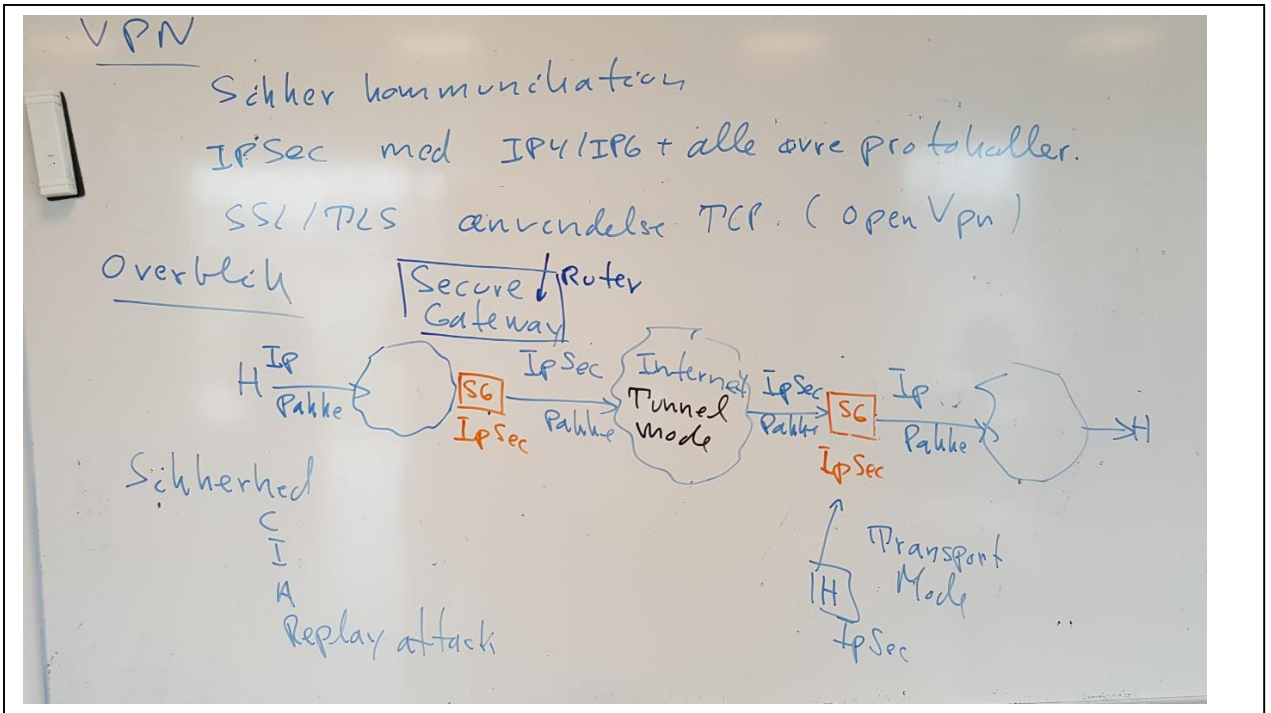 VPN
Sikker kommunikation
IPSec med IP4/IP6 + alle øvre protokoller.
SSL/TLS anvendelse TCP. (Open Vpn)
Overblik
Secure Gateway
Ruter
H Ip Pakke
SG
IpSec
IpSec Pakke
Internet
Tunnel mode
IpSec Pakke
SG
IpSec
Ip Pakke
H
Sikkerhed
C
I
A
Replay attack
Transport Mode
H
IpSec